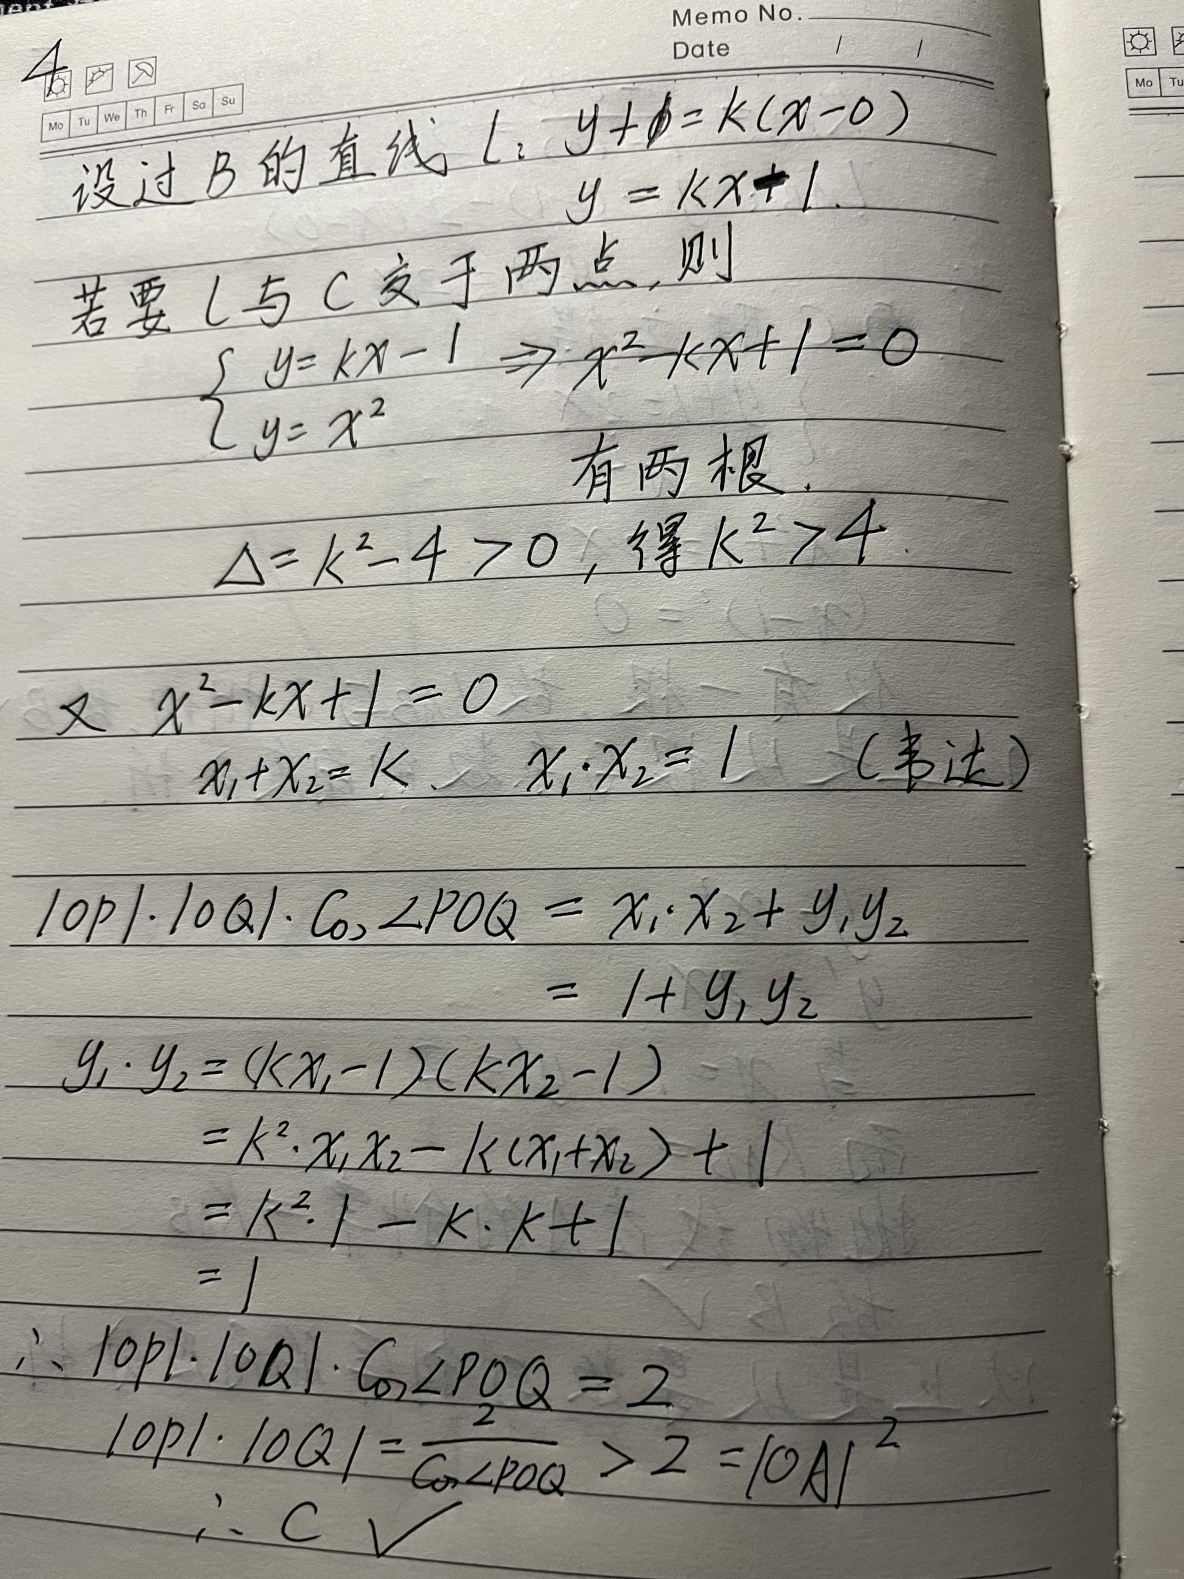 Memo No.
Date / /
4
Mo Tu We Th Fr Sa Su
Mo Tu
设过B的直线 l: y+1=k(x-0)
y=kx-1.
若要l与C交于两点,则
{ y=kx-1 ⇒ x²-kx+1=0
y=x²
有两根.
Δ=k²-4>0, 得k²>4.
又 x²-kx+1=0
x₁+x₂=k、 x₁·x₂=1 (韦达)
|OP|·|OQ|·Cos∠POQ = x₁·x₂+y₁y₂
= 1+y₁y₂
y₁·y₂=(kx₁-1)(kx₂-1)
=k²·x₁x₂-k(x₁+x₂)+1
=k²·1-k·k+1
=1
∴ |OP|·|OQ|·Cos∠POQ=2
|OP|·|OQ|=2/Cos∠POQ >2=|OA|²
∴ C ✓